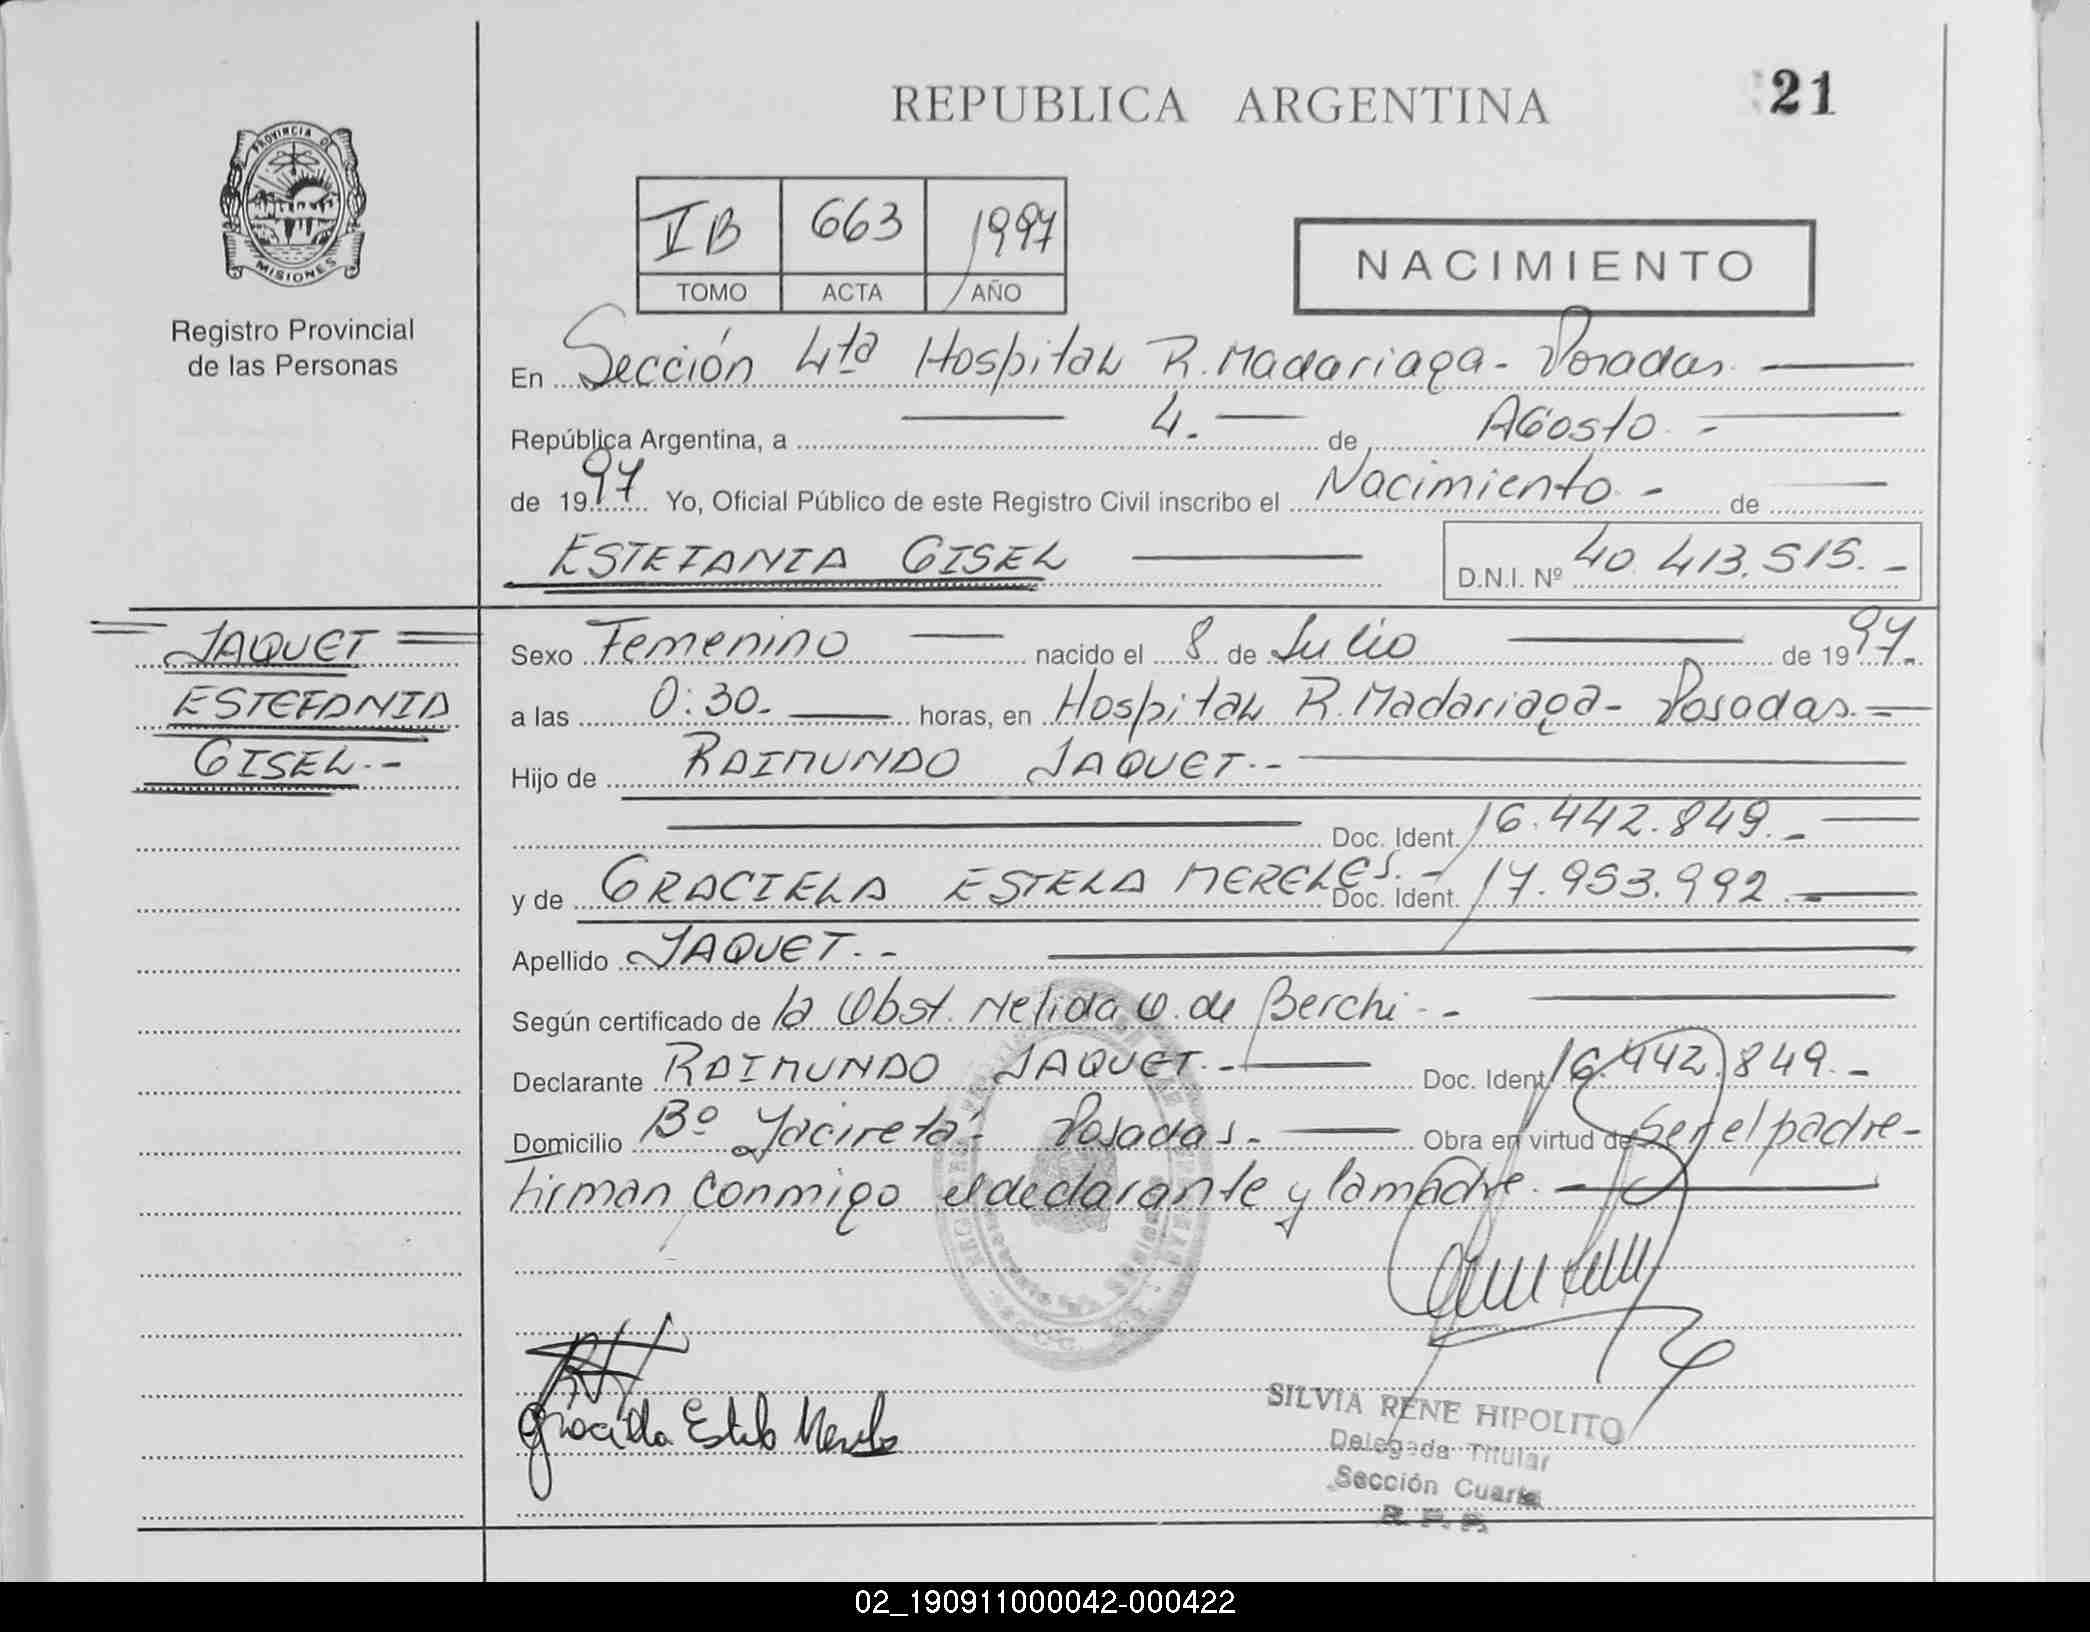 REPUBLICA ARGENTINA
21
PROVINCIA DE
MISIONES
Registro Provincial
de las Personas
IB 663 1997
TOMO ACTA AÑO
NACIMIENTO
En Sección 4ta Hospital R. Madariaga - Posadas
República Argentina, a 4.- de Agosto -
de 1997 Yo, Oficial Público de este Registro Civil inscribo el Nacimiento - de
ESTEFANIA GISEL
D.N.I. Nº 40.413.515.-
JAQUET
ESTEFANIA
GISEL.-
Sexo Femenino nacido el 8 de Julio de 1997.-
a las 0:30.- horas, en Hospital R. Madariaga - Posadas.-
Hijo de RAIMUNDO JAQUET.-
Doc. Ident. 16.442.849.-
y de GRACIELA ESTELA MERELES.- Doc. Ident. 17.953.992.-
Apellido JAQUET.-
Según certificado de la Obst. Nelida O. de Berchi.-
Declarante RAIMUNDO JAQUET.- Doc. Ident. 16.442.849.-
Domicilio Bº Yacireta - Posadas.- Obra en virtud de Ser el padre-
firman conmigo el declarante y la madre.-
Graciela Estela Mereles
SILVIA RENE HIPOLITO
Delegada Titular
Sección Cuarta
R. P. P.
02_190911000042-000422